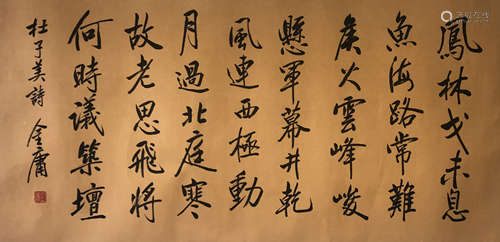 鳳林戈未息
魚海路常難
矦火雲峰峻
懸軍幕井乾
風連西極動
月過北庭寒
故老思飛將
何時議築壇
杜子美詩 金庸